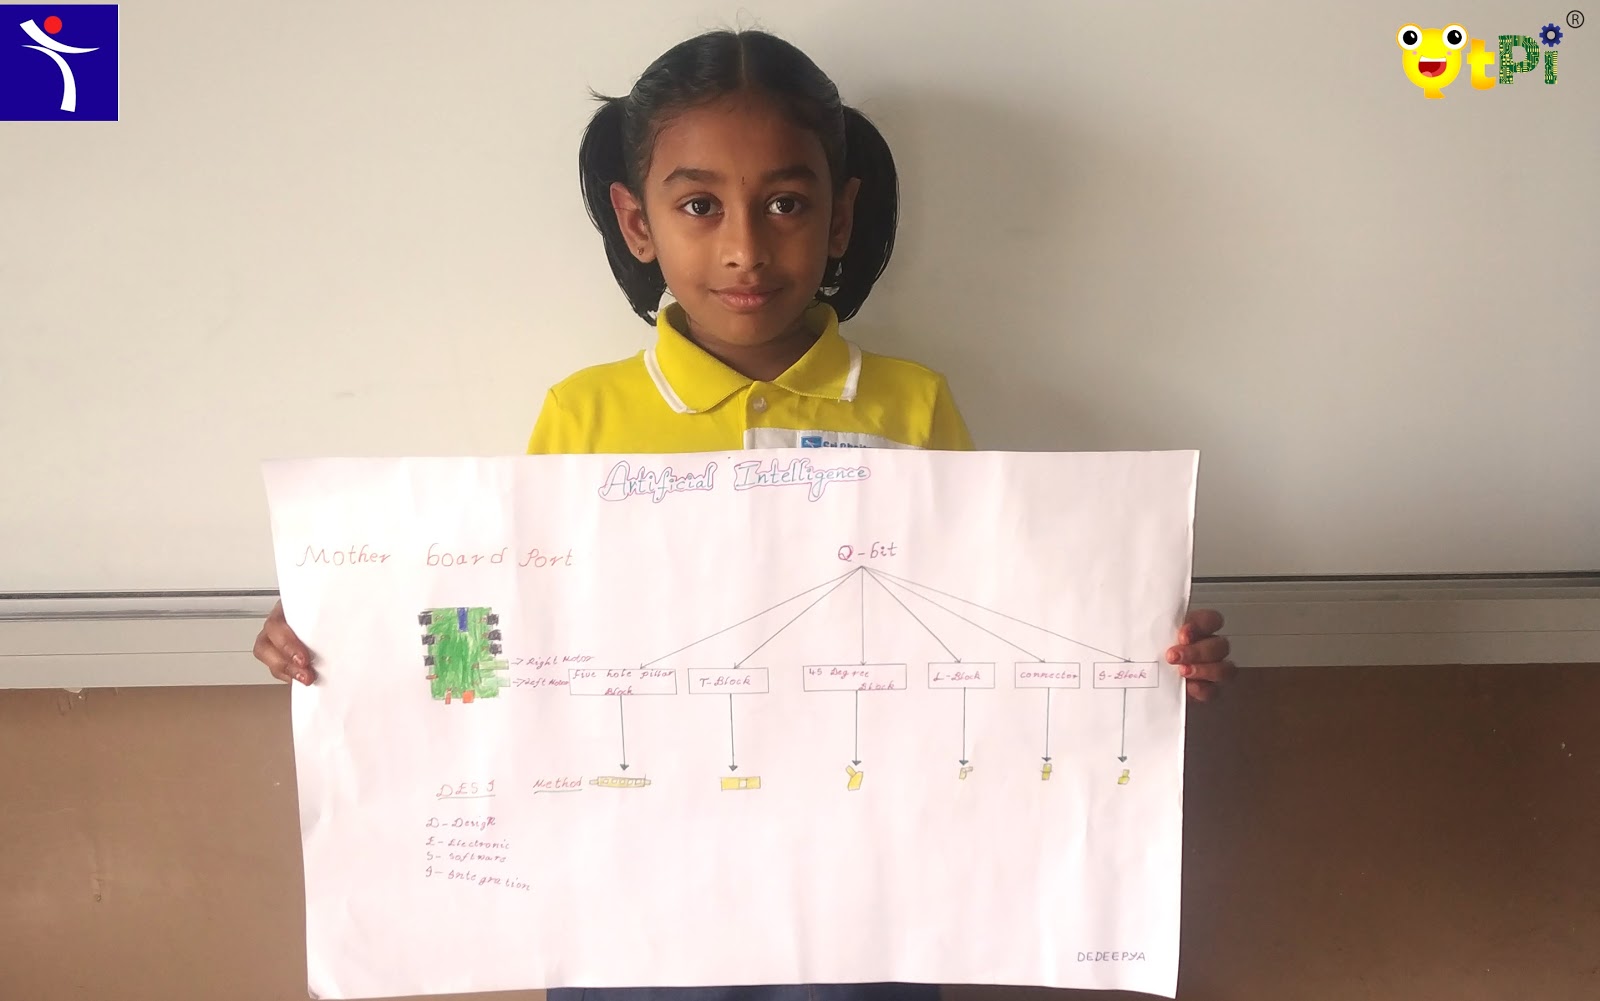 QtPi®
Artificial Intelligence
Mother board Port
Q-bit
→ Right Motor
→ Left Motor
five hole pillar Block
T-Block
45 Degree Block
L-Block
connector
S-Block
DESI Method
D-Design
E-Electronic
S-Software
I-Integration
DEDEEPYA